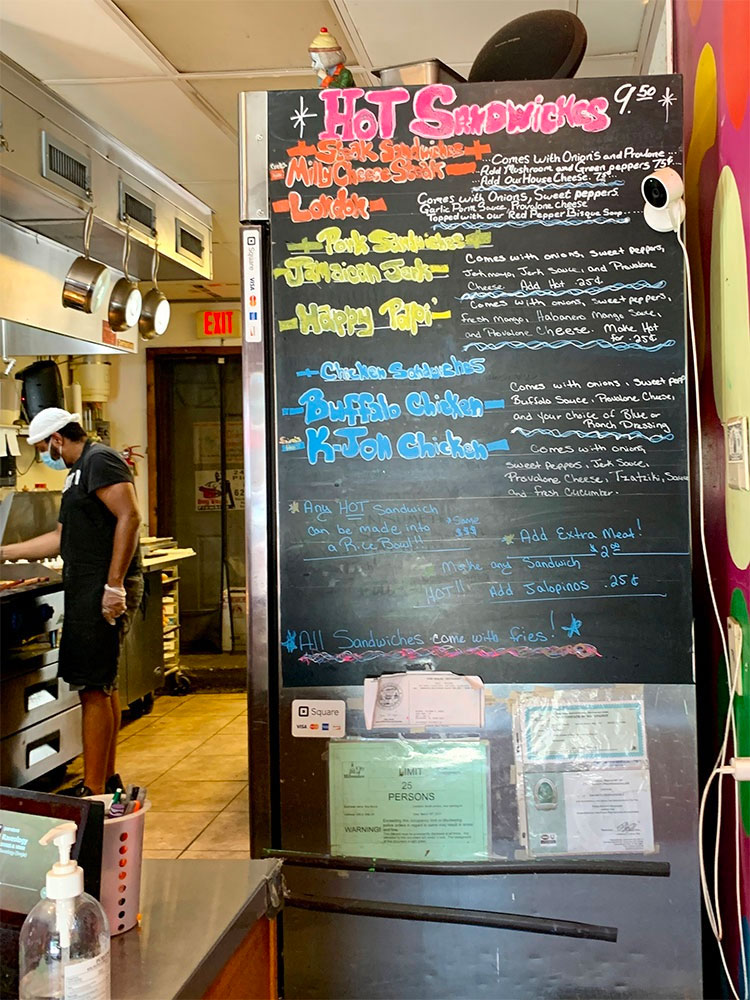 HOT SANDWICHES 9.50
Steak Sandwiches
Milly Cheese Steak
Comes with Onions and Provolone
Add Mushroom and Green peppers 75¢
Add Our House Cheese .75¢
London
Comes with Onions, Sweet peppers,
Garlic Parm Sauce, Provolone Cheese
Topped with our Red Pepper Bisque Soup
Pork Sandwiches
Jamaican Jerk
Comes with onions, sweet peppers,
Jerk mayo, Jerk Sauce, and Provolone
Cheese. Add Hot .25¢
Happy Papi
Comes with onions, sweet peppers,
Fresh Mango, Habanero Mango Sauce,
and Provolone Cheese. Make Hot
for .25¢
Chicken Sandwiches
Buffalo Chicken
Comes with onions, sweet pepp
Buffalo Sauce, Provolone Cheese,
and your choice of Blue or
Ranch Dressing
K-Jon Chicken
Comes with onions
sweet peppers, Jerk Sauce,
Provolone Cheese, Tzatziki, Sauce
and fresh Cucumber.
Any HOT Sandwich
can be made into
a Rice Bowl!!
Same
$$$
Add Extra Meat!
$2.00
Make any Sandwich
HOT!! Add Jalapinos .25¢
All Sandwiches come with fries!
EXIT
Square VISA
Square
VISA
LIMIT
25
PERSONS
WARNING!